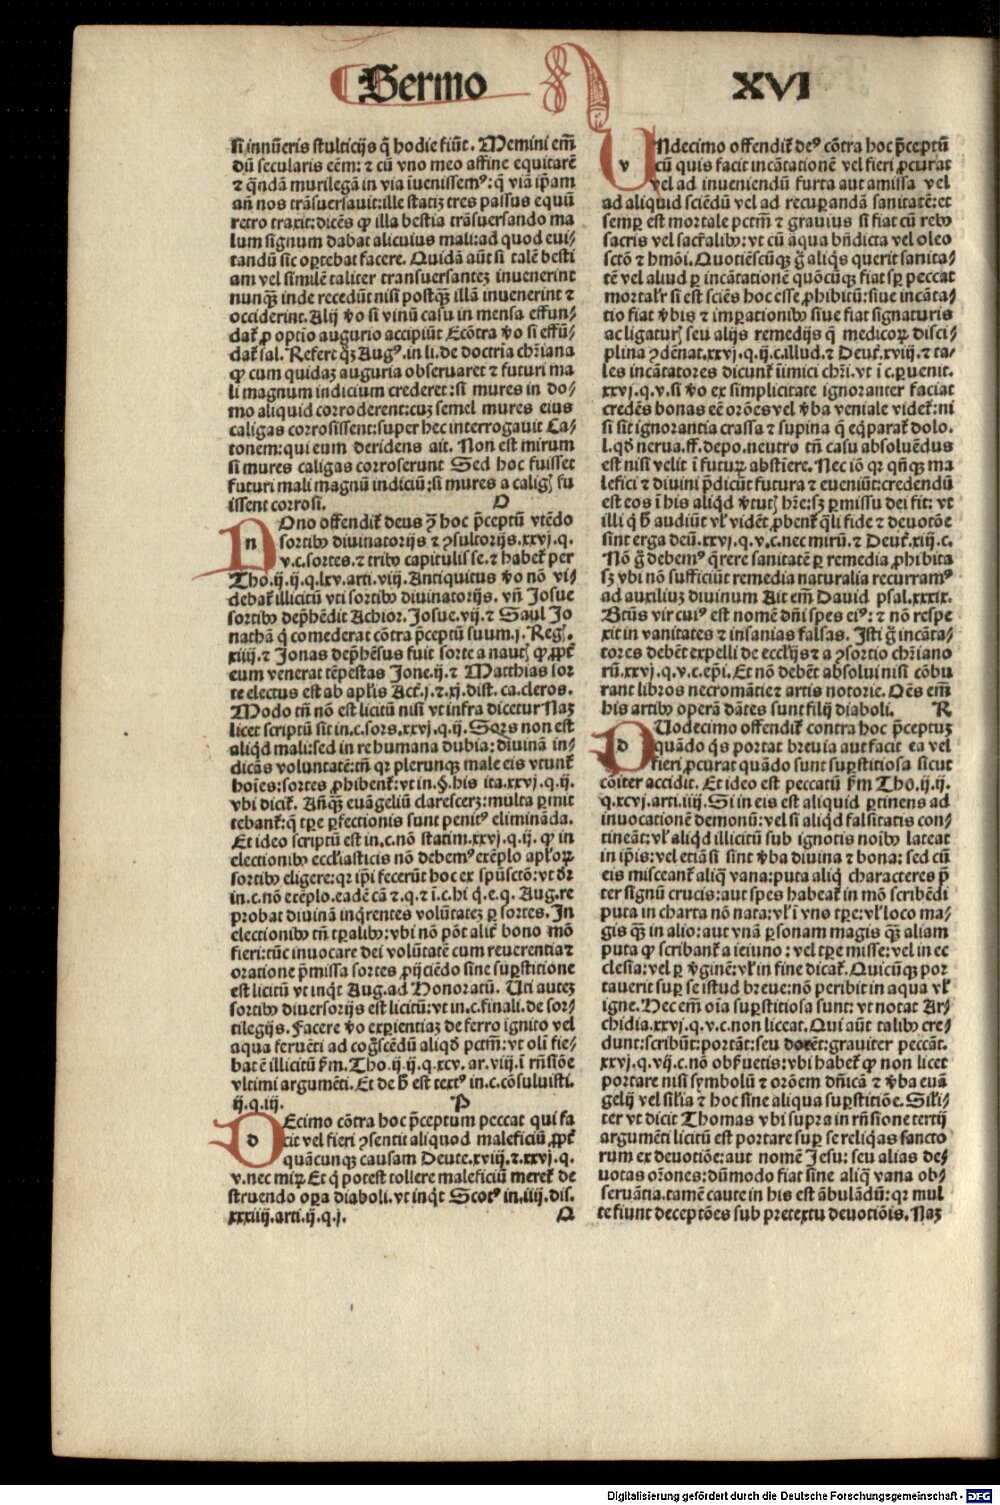 Sermo XVI
si innūeris stulticijs q̄ hodie fiūt. Memini em̄
dū secularis eēm: ⁊ cū vno meo affine equitarē
⁊ q̄ndā murilegā in via īuenissemꝰ: q̄ viā ip̄am
añ nos trāsuersauit: ille statiʒ tres passus equū
retro traxit: dicēs ꝙ illa bestia trāsuersando ma
lum signum dabat alicuius mali: ad quod eui⸗
tandū sic oꝑtebat facere. Quidā aūt si talē besti
am vel similē taliter transuersanteʒ inuenerint
nunqꝫ inde recedūt nisi postqꝫ illā inuenerint ⁊
occiderint. Alij ꝟo si vinū casu in mensa effun⸗
dat᷑ ꝓ optio augurio accipiūt Ecōtra ꝟo si effū⸗
dat᷑ sal. Refert qʒ Augꝰ. in li. de doctria chr̄iana
ꝙ cum quidaʒ auguria obseruaret ⁊ futuri ma
li magnum indicium crederet: si mures in do⸗
mo aliquid corroderent: cuʒ semel mures eius
caligas corrosissent: super hec interrogauit Ca⸗
tonem: qui eum deridens ait. Non est mirum
si mures caligas corroserunt Sed hoc fuisset
futuri mali magnū indiciū: si mures a caligꝭ fu
issent corrosi. O
n Ono offendit᷑ deus ↄ̄ hoc p̄ceptū vtēdo
sortibꝰ diuinatorijs ⁊ ↄsultorijs. xxvj. q.
v. c. sortes. ⁊ tribꝰ capitulis se. ⁊ habet᷑ per
Tho. ij. ij. q. lxv. arti. viij. Antiquitus ꝟo nō vi⸗
debat᷑ illicitū vti sortibꝰ diuinatorijs. vñ Josue
sortibꝰ dep̄hēdit Achior. Josue. vij. ⁊ Saul Jo
nathā q̇ comederat cōtra p̄ceptū suum. j. Regꝭ.
xiiij. ⁊ Jonas dep̄hēsus fuit sorte a nautꝭ ꝙ ꝓpt᷑
eum venerat tēpestas Jone. ij. ⁊ Matthias sor
te electus est ab apl̄is Act᷑. j. ⁊. xj. dist. ca. cleros.
Modo tñ nō est licitū nisi vt infra dicetur Naʒ
licet scriptū sit in. c. sors. xxvj. q. ij. Sors non est
aliqd mali: sed in re humana dubia: diuinā in⸗
dicās voluntatē: tñ qꝛ plerunqꝫ male eis vtunt᷑
hoīes: sortes ꝓhibent᷑: vt in. §. his ita. xxvj. q. ij.
vbi dicit᷑. Añqꝫ euāgeliū claresceꝛʒ: multa ꝑmit
tebant᷑: q̄ tꝑe ꝑfectionis sunt penitꝰ elimināda.
Et ideo scriptū est in. c. nō statim. xxvj. q. ij. ꝙ in
electionibꝰ eccl̄iasticis nō debemꝰ exēplo apl̄oꝝ
sortibꝰ eligere: qꝛ ip̄i fecerūt hoc ex spūsctō: vt dr̄
in. c. nō exēplo. eadē cā ⁊. q. ⁊ ī. c. hi q̇. e. q. Aug. re
probat diuinā inqͥrentes volūtateʒ ꝑ sortes. In
electionibꝰ tñ tꝑalibꝰ: vbi nō pōt alit᷑ bono mō
fieri: tūc inuocare dei volūtatē cum reuerentia ⁊
oratione p̄missa sortes ꝓijciēdo sine suꝑstitione
est licitū vt inqͥt Aug. ad Honoratū. Uti auteʒ
sortibꝰ diuersorijs est licitū: vt in. c. finali. de sor⸗
tilegijs. Facere ꝟo exꝑientiaʒ de ferro ignito vel
aqua feruēti ad cogͦscēdū aliqd pctm̄: vt olī fie⸗
bat ē illicitū ẜm. Tho. ij. ij. q. xcv. ar. viij. ī rñsiōe
vltimi argumēti. Et de h̄ est textꝰ in. c. cōsuluisti.
ij. q. iij. P
d Ecimo cōtra hoc p̄ceptum peccat qui fa
cit vel fieri ↄsentit aliquod maleficiū ꝓpt᷑
quācunqꝫ causam Deute. xviij. ⁊. xxvj. q.
v. nec miꝝ Et q̇ potest tollere maleficiū meret᷑ de
struendo oꝑa diaboli. vt inqͥt Scotꝰ in. iiij. dis.
xxxiiij. arti. ij. q. j. Q
v Ndecimo offendit᷑ deꝰ cōtra hoc p̄ceptū
cū quis facit incātationē vel fieri ꝓcurat
vel ad inueniendū furta aut amissa vel
ad aliquid sciēdū vel ad recuꝑandā sanitatē: et
semꝑ est mortale pctm̄ ⁊ grauius si fiat cū rebꝰ
sacris vel sacr̄alibꝰ: vt cū aqua bñdicta vel oleo
sctō ⁊ hmōi. Quotiēscūqꝫ g̊ aliq̇s querit sanita⸗
tē vel aliud ꝑ incātationē quōcūqꝫ fiat sꝑ peccat
mortalr̄ si est sciēs hoc esse ꝓhibitū: siue incāta⸗
tio fiat ꝟbis ⁊ imꝑationibꝰ siue fiat signaturis
ac ligaturꝭ seu alijs remedijs q̄ medicoꝝ disci⸗
plina ↄdēnat. xxvj. q. ij. c. illud. ⁊ Deut᷑. xviij. ⁊ ta⸗
les incātatores dicunt᷑ īimici chr̄i. vt ī c. ꝑuenit.
xxvj. q. v. si ꝟo ex simplicitate ignoranter faciat
credēs bonas eē orōes vel ꝟba veniale videt᷑: ni
si sit ignorantia crassa ⁊ supina q̄ eqͥparat᷑ dolo.
l. qd nerua. ff. depo. neutro tñ casu absoluēdus
est nisi velit ī futuꝝ abstiēre. Nec iō qꝛ qñqꝫ ma
lefici ⁊ diuini p̄dicūt futura ⁊ eueniūt: credendū
est eos ī his aliqd ꝟtutꝭ hr̄e: sʒ ꝑmissu dei fit: vt
illi q̇ h̄ audiūt vl̄ vidēt ꝓbent᷑ qͣli fide ⁊ deuotōe
sint erga deū. xxvj. q. v. c. nec mirū. ⁊ Deut᷑. xiij. c.
Nō g̊ debemꝰ qͥrere sanitatē ꝑ remedia ꝓhibita
sʒ vbi nō sufficiūt remedia naturalia recurramꝰ
ad auxiliuʒ diuinum Ait em̄ Dauid psal. xxxix.
Btūs vir cuiꝰ est nomē dñi spes eiꝰ: ⁊ nō respe
xit in vanitates ⁊ insanias falsas. Isti g̊ incāta⸗
tores debēt expelli de eccl̄ijs ⁊ a ↄsortio chr̄iano
rū. xxvj. q. v. c. ep̄i. Et nō debēt absolui nisi cōbu
rant libros necromātie ⁊ artis notorie. Oēs em̄
his artibꝰ operā dātes sunt filij diaboli. R
d Uodecimo offendit᷑ contra hoc p̄ceptuʒ
quādo q̇s portat breuia aut facit ea vel
fieri ꝓcurat quādo sunt suꝑstitiosa sicut
cōiter accidit. Et ideo est peccatū ẜm Tho. ij. ij.
q. xcvj. arti. iiij. Si in eis est aliquid ꝑtinens ad
inuocationē demonū: vel si aliqd falsitatis con⸗
tineāt: vl̄ aliqd illicitū sub ignotis noībꝰ lateat
in ip̄is: vel etiā si sint ꝟba diuina ⁊ bona: sed cū
eis misceant᷑ aliq̄ vana: puta aliq̇ characteres p̄
ter signū crucis: aut spes habeat᷑ in mō scribēdi
puta in charta nō nata: vl̄ ī vno tꝑe: vl̄ loco ma⸗
gis qꝫ in alio: aut vnā ꝑsonam magis qꝫ aliam
puta ꝙ scribant᷑ a ieiuno: vel tꝑe misse: vel in ec
clesia: vel ꝑ ꝟginē: vl̄ in fine dicat᷑. Quicūqꝫ por
tauerit suꝑ se istud breue: nō peribit in aqua vl̄
igne. Hec em̄ oīa suꝑstitiosa sunt: vt notat Ar⸗
chidia. xxvj. q. v. c. non liceat. Qui aūt talibꝰ cre⸗
dunt: scribūt: portāt: seu docēt: grauiter peccāt.
xxvj. q. vij. c. nō obẜuetis: vbi habet᷑ ꝙ non licet
portare nisi symbolū ⁊ orōem dñicā ⁊ ꝟba euā
gelij vel sil̄ia ⁊ hoc sine aliqua suꝑstitiōe. Sil̄i⸗
ter vt dicit Thomas vbi supra in rñsione tertij
argumēti licitū est portare suꝑ se reliqͥas sancto
rum ex deuotiōe: aut nomē Jesu: seu alias de⸗
uotas orōnes: dūmodo fiat sine aliq̄ vana ob⸗
seruātia. tamē caute in his est ābulādū: qꝛ mul
te fiunt deceptōes sub pretextu deuotiōis. Naʒ
Digitalisierung gefördert durch die Deutsche Forschungsgemeinschaft - DFG